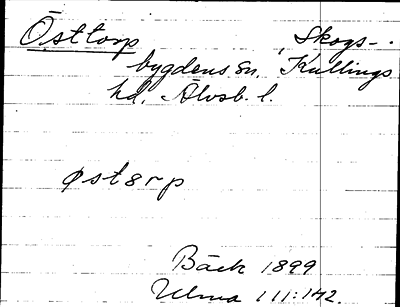 Östtorp, Skogs-
bygdens sn. Kullings
hd. Älvsb. l.
øst8rp
Bäck 1899
Ulma 111:142.